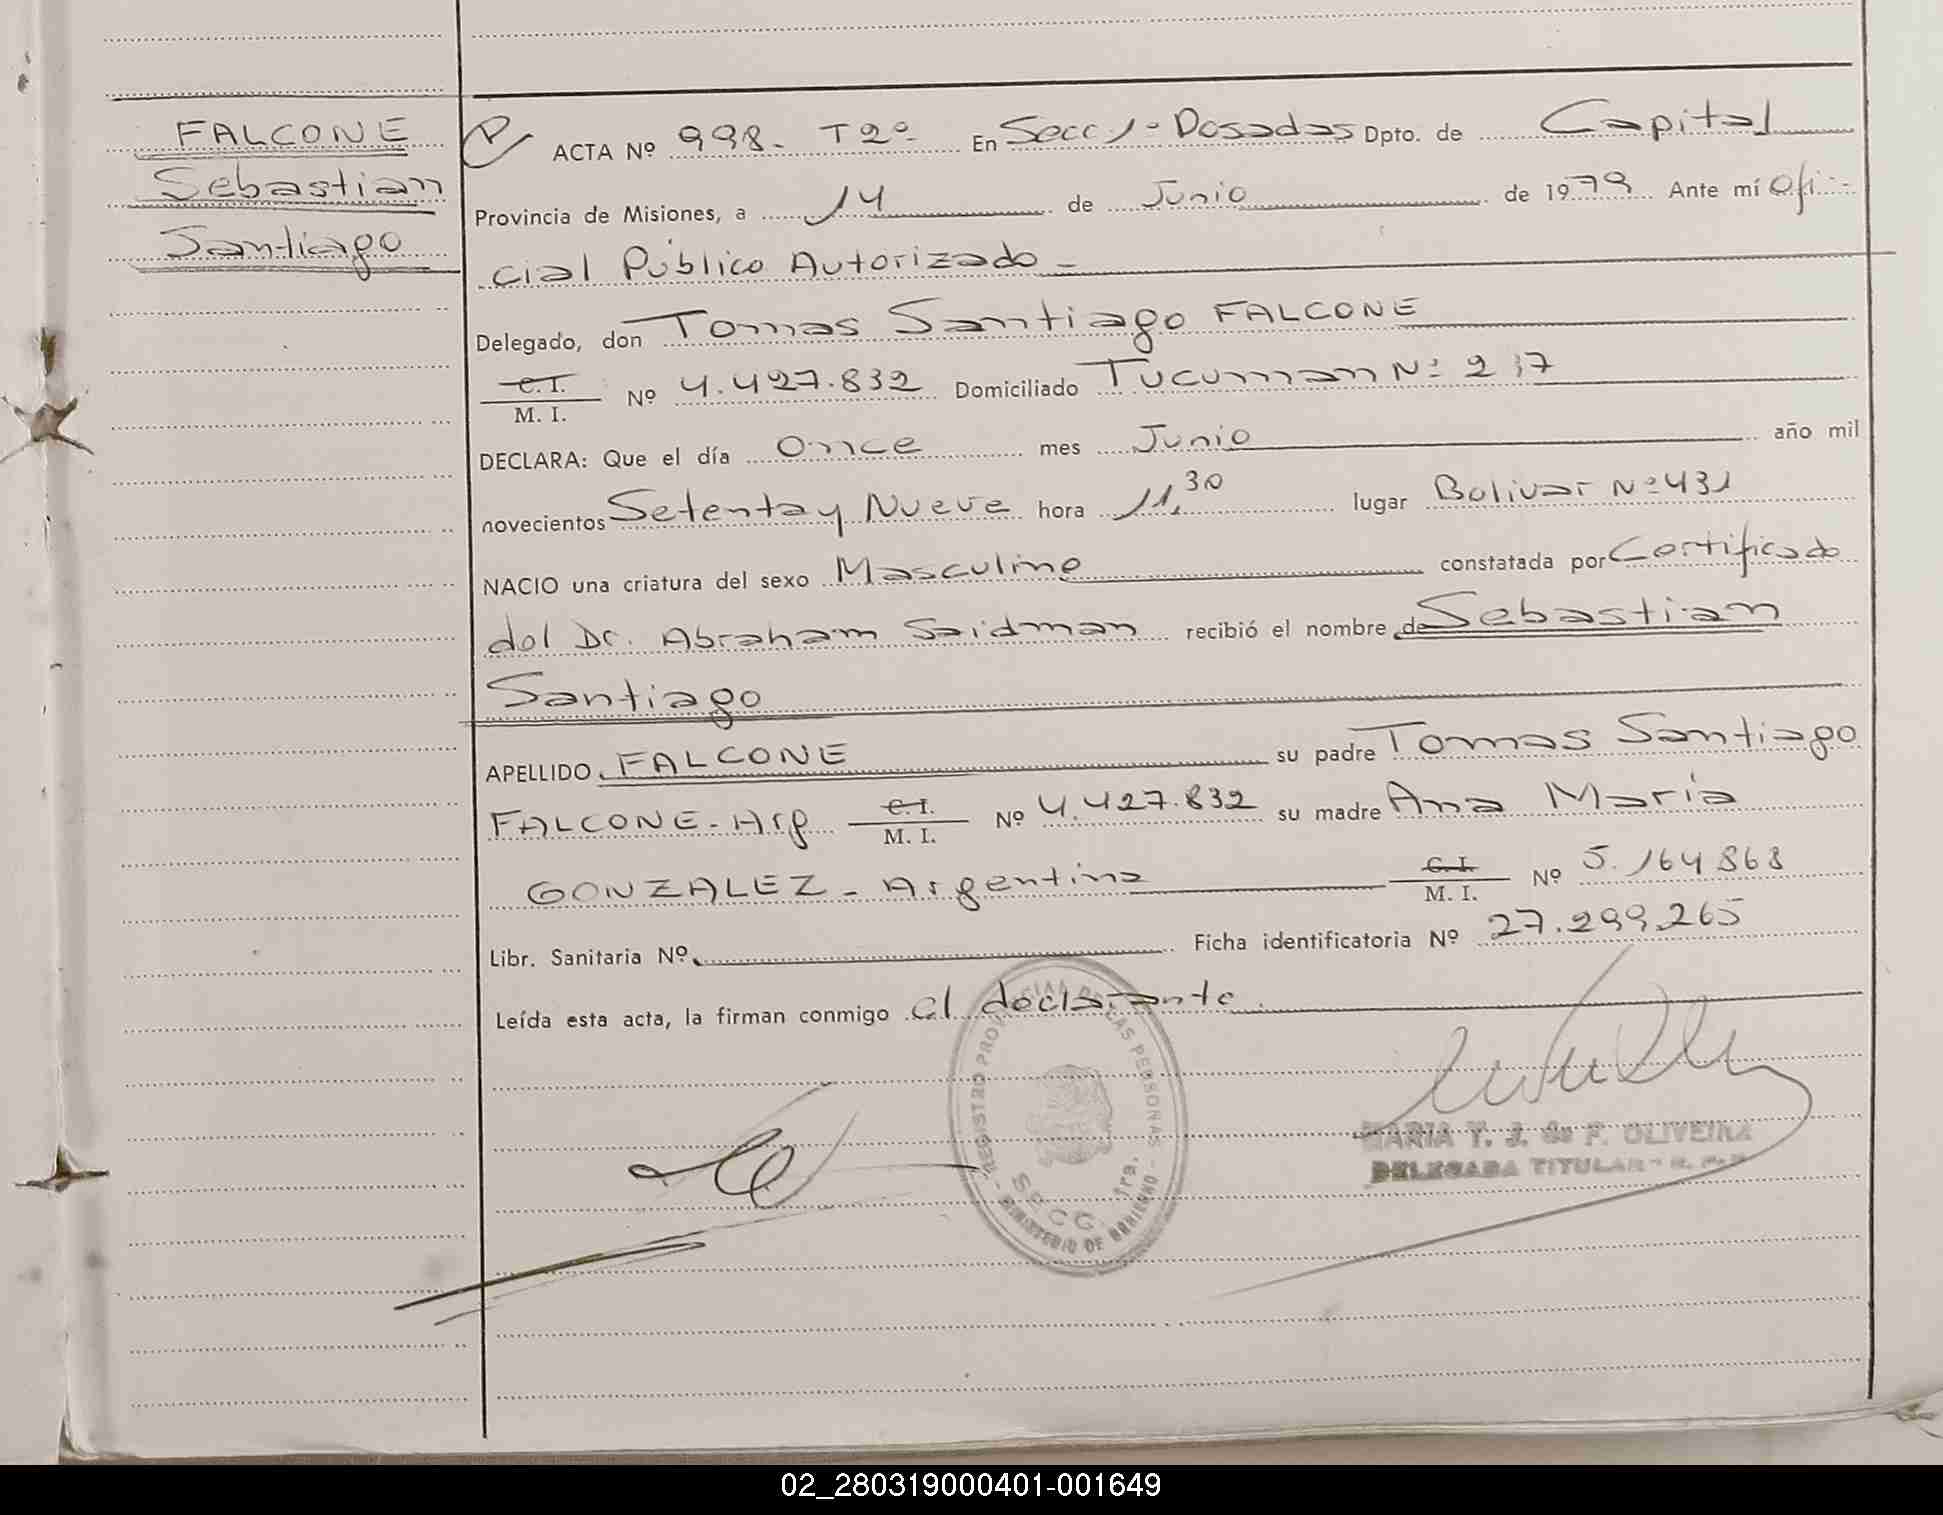 FALCONE
Sebastian
Santiago
ACTA Nº 998- T2º- En Secc 1ª Posadas Dpto. de Capital
Provincia de Misiones, a 14 de Junio de 1979 Ante mí Ofi-
cial Público Autorizado -
Delegado, don Tomas Santiago FALCONE
C.I.
M. I. Nº 4.427.832 Domiciliado Tucuman Nº 217
DECLARA: Que el día Once mes Junio año mil
novecientos Setenta y Nueve hora 11,30 lugar Bolivar Nº 431
NACIO una criatura del sexo Masculino constatada por Certificado
del Dr. Abraham Saidman recibió el nombre de Sebastian
Santiago
APELLIDO FALCONE su padre Tomas Santiago
FALCONE - Arg C.I.
M. I. Nº 4.427.832 su madre Ana María
GONZALEZ - Argentina C.I.
M. I. Nº 5.164868
Libr. Sanitaria Nº Ficha identificatoria Nº 27.299.265
Leída esta acta, la firman conmigo el declarante.
REGISTRO PROVINCIAL DE LAS PERSONAS - MINISTERIO DE GOBIERNO -
SECC. 1ra.
MARIA Y. J. de F. OLIVEIRA
DELEGADA TITULAR - R. P. P.
02_280319000401-001649